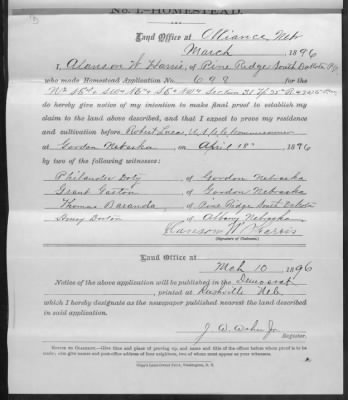 No. 1.—HOMESTEAD.
Land Office at Alliance Neb
March 1896
I, Alanson W Harris, of Pine Ridge South Dakota
who made Homestead Application No. 698 for the
do hereby give notice of my intention to make final proof to establish my
claim to the land above described, and that I expect to prove my residence
and cultivation before Robert Lucas, U.S. Commissioner
at Gordon Nebraska on April 18th 1896
by two of the following witnesses:
Philander Doty, of Gordon Nebraska
Grant Gaston, of Gordon Nebraska
Thomas Baranda, of Pine Ridge South Dakota
Henry of Albany Nebraska
Alanson W Harris
(Signature of Claimant.)
Land Office at
Mch 10, 1896
Notice of the above application will be published in the Democrat
, printed at Rushville Neb,
which I hereby designate as the newspaper published nearest the land described
in said application.
J. W. Wehn Jr
Register.
NOTICE TO CLAIMANT.—Give time and place of proving up, and name and title of the officer before whom proof is to be
made; also give names and post-office address of four neighbors, two of whom must appear as your witnesses.